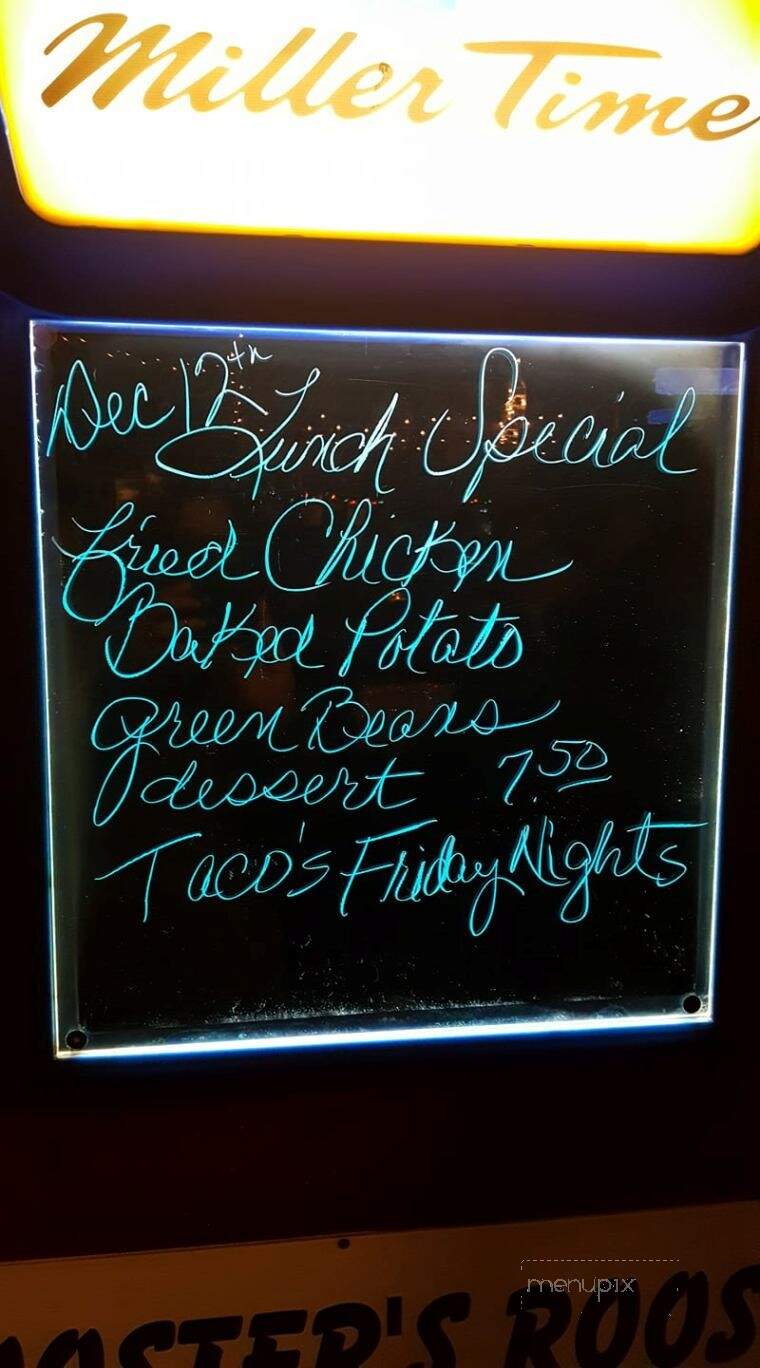 Miller Time
Dec 12th
Lunch Special
Fried Chicken
Baked Potato
green Beans
dessert 7.50
Taco's Friday Nights
menupix
OOSTER'S ROOS